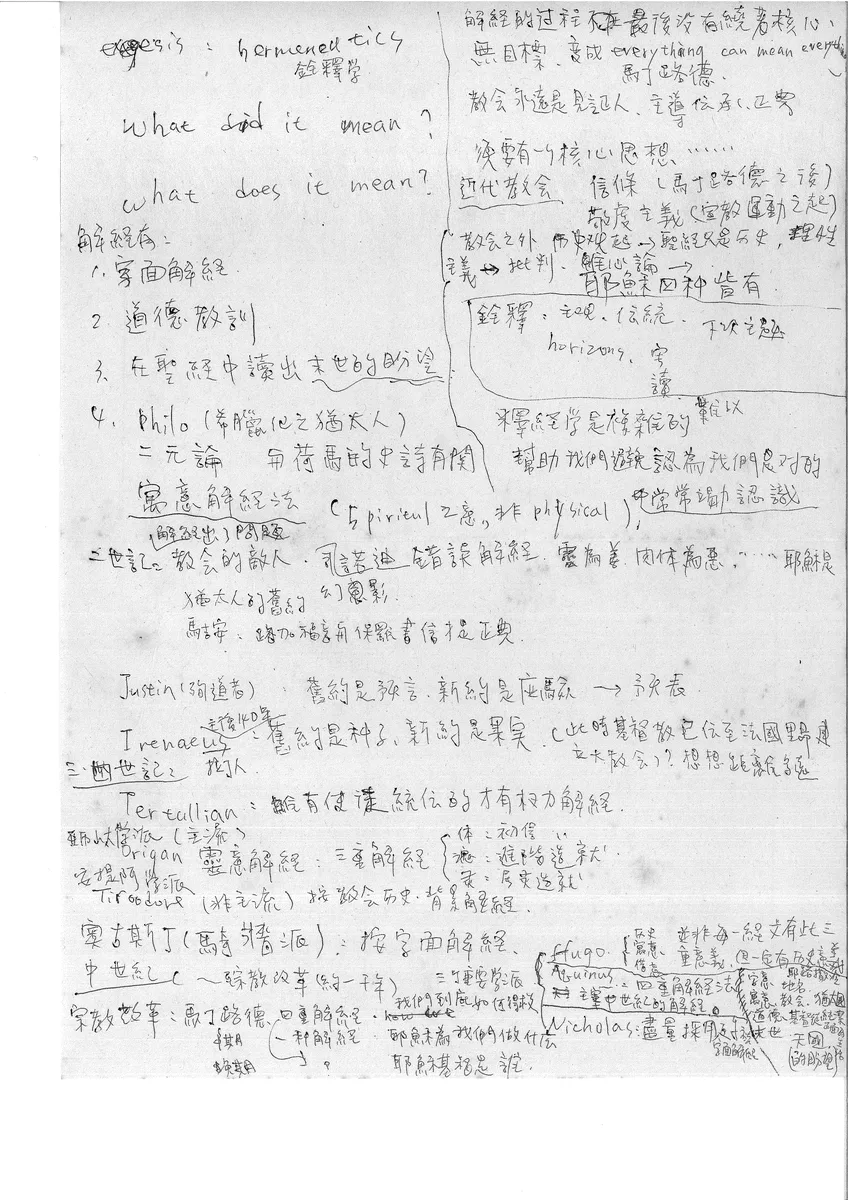 exegesis : hermeneutics
詮釋学
what did it mean?
what does it mean?
解經有:
1. 字面解經.
2. 道德教訓
3. 在聖經中讀出末世的盼望
4. philo (希臘化之猶太人)
二元論 与荷馬的史詩有関
寓意解經法
(spiritul 之意,非 physical)
解經的过程 最後沒有繞著核心、
無目標、変成 everything can mean everything
馬丁路德.
教会永遠是見証人、主導伝承、正典
須要有一个核心思想……
近代教会 信條 (馬丁路德之後)
敬虔主義 (宣教運動之起)
教会之外 历史 起→聖經只是历史,理性
主義→批判、唯心論→
耶穌四种皆有
詮釋: 主观、伝統. 下次主題
horizons、寫
讀
釋經学是複雜的 難以
幫助我們避免認為我們是对的
也常常 認識
(解經出了問題)
二世記: 教会的敵人. 諾斯迪 錯誤解經. 靈為善、肉体為惡,…… 耶穌是
幻影.
猶太人的舊約
馬吉安: 路加福音与保羅書信才是正典.
Justin (殉道者): 舊約是予言.新約是应驗 → 予表.
主後140年
Irenaeus: 舊約是种子、新約是果実. (此時基督教已伝至法國里昂建
立大教会)? 想想距離多遠
三、四世記: 拉丁人.
Tertullian: 有使徒統伝的才有权力解經.
亞历山大学派 (主流)
Origan 靈意解經: 三重解經
体: 初信
魂: 進階造就
灵: 屬灵造就
安提阿学派
Tiroodore (非主流) 按教会历史、背景解經.
奧古斯丁 (騎牆派): 按字面解經.
中世紀 (~宗教改革 (約千年) 三个重要学派
Hugo.
历史
寓意
並非每一經文有此三
重意義. 但一定有历史意義
Aquinus: 四重解經法
主宰中世紀的解經.
字意: 耶路撒冷
地名
寓意: 教会.
道德: 基督徒
末世
天國
的盼望
Nicholas: 盡量採用
字面解經
宗教改革: 馬丁路德. 四重解經. 我們到底如何得救
早期
一种解經: 耶穌為我們做什広
後期
? 耶穌基督是誰.